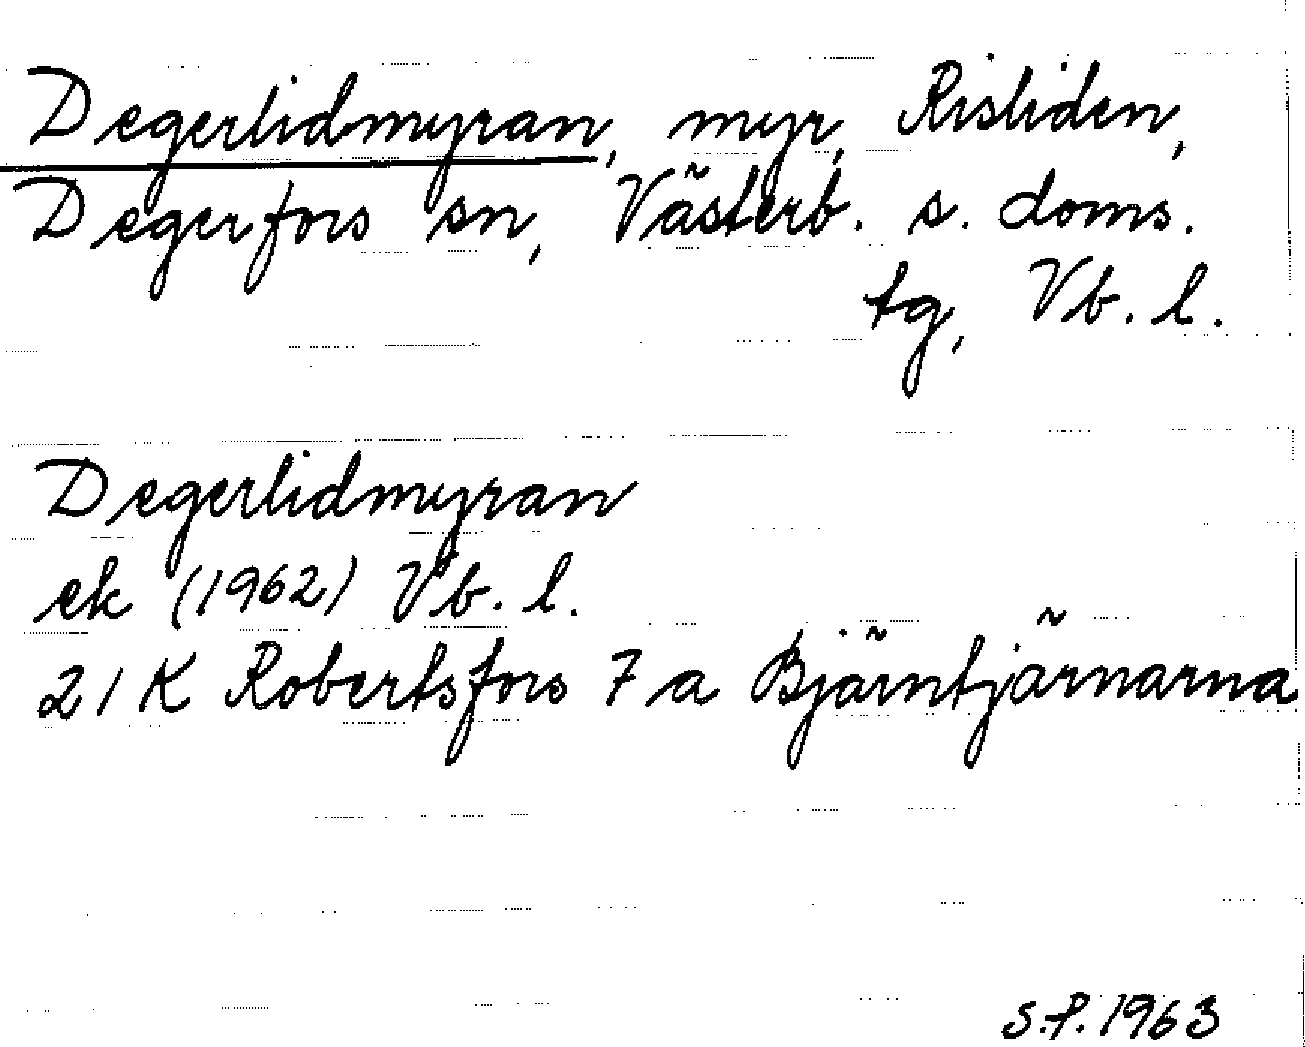 Degerlidmyran, myr, Risliden,
Degerfors sn, Västerb. s. doms.
tg, Vb. l.
Degerlidmyran
ek (1962) Vb. l.
21 K Robertsfors 7 a Bjärntjärnarna
S.P. 1963